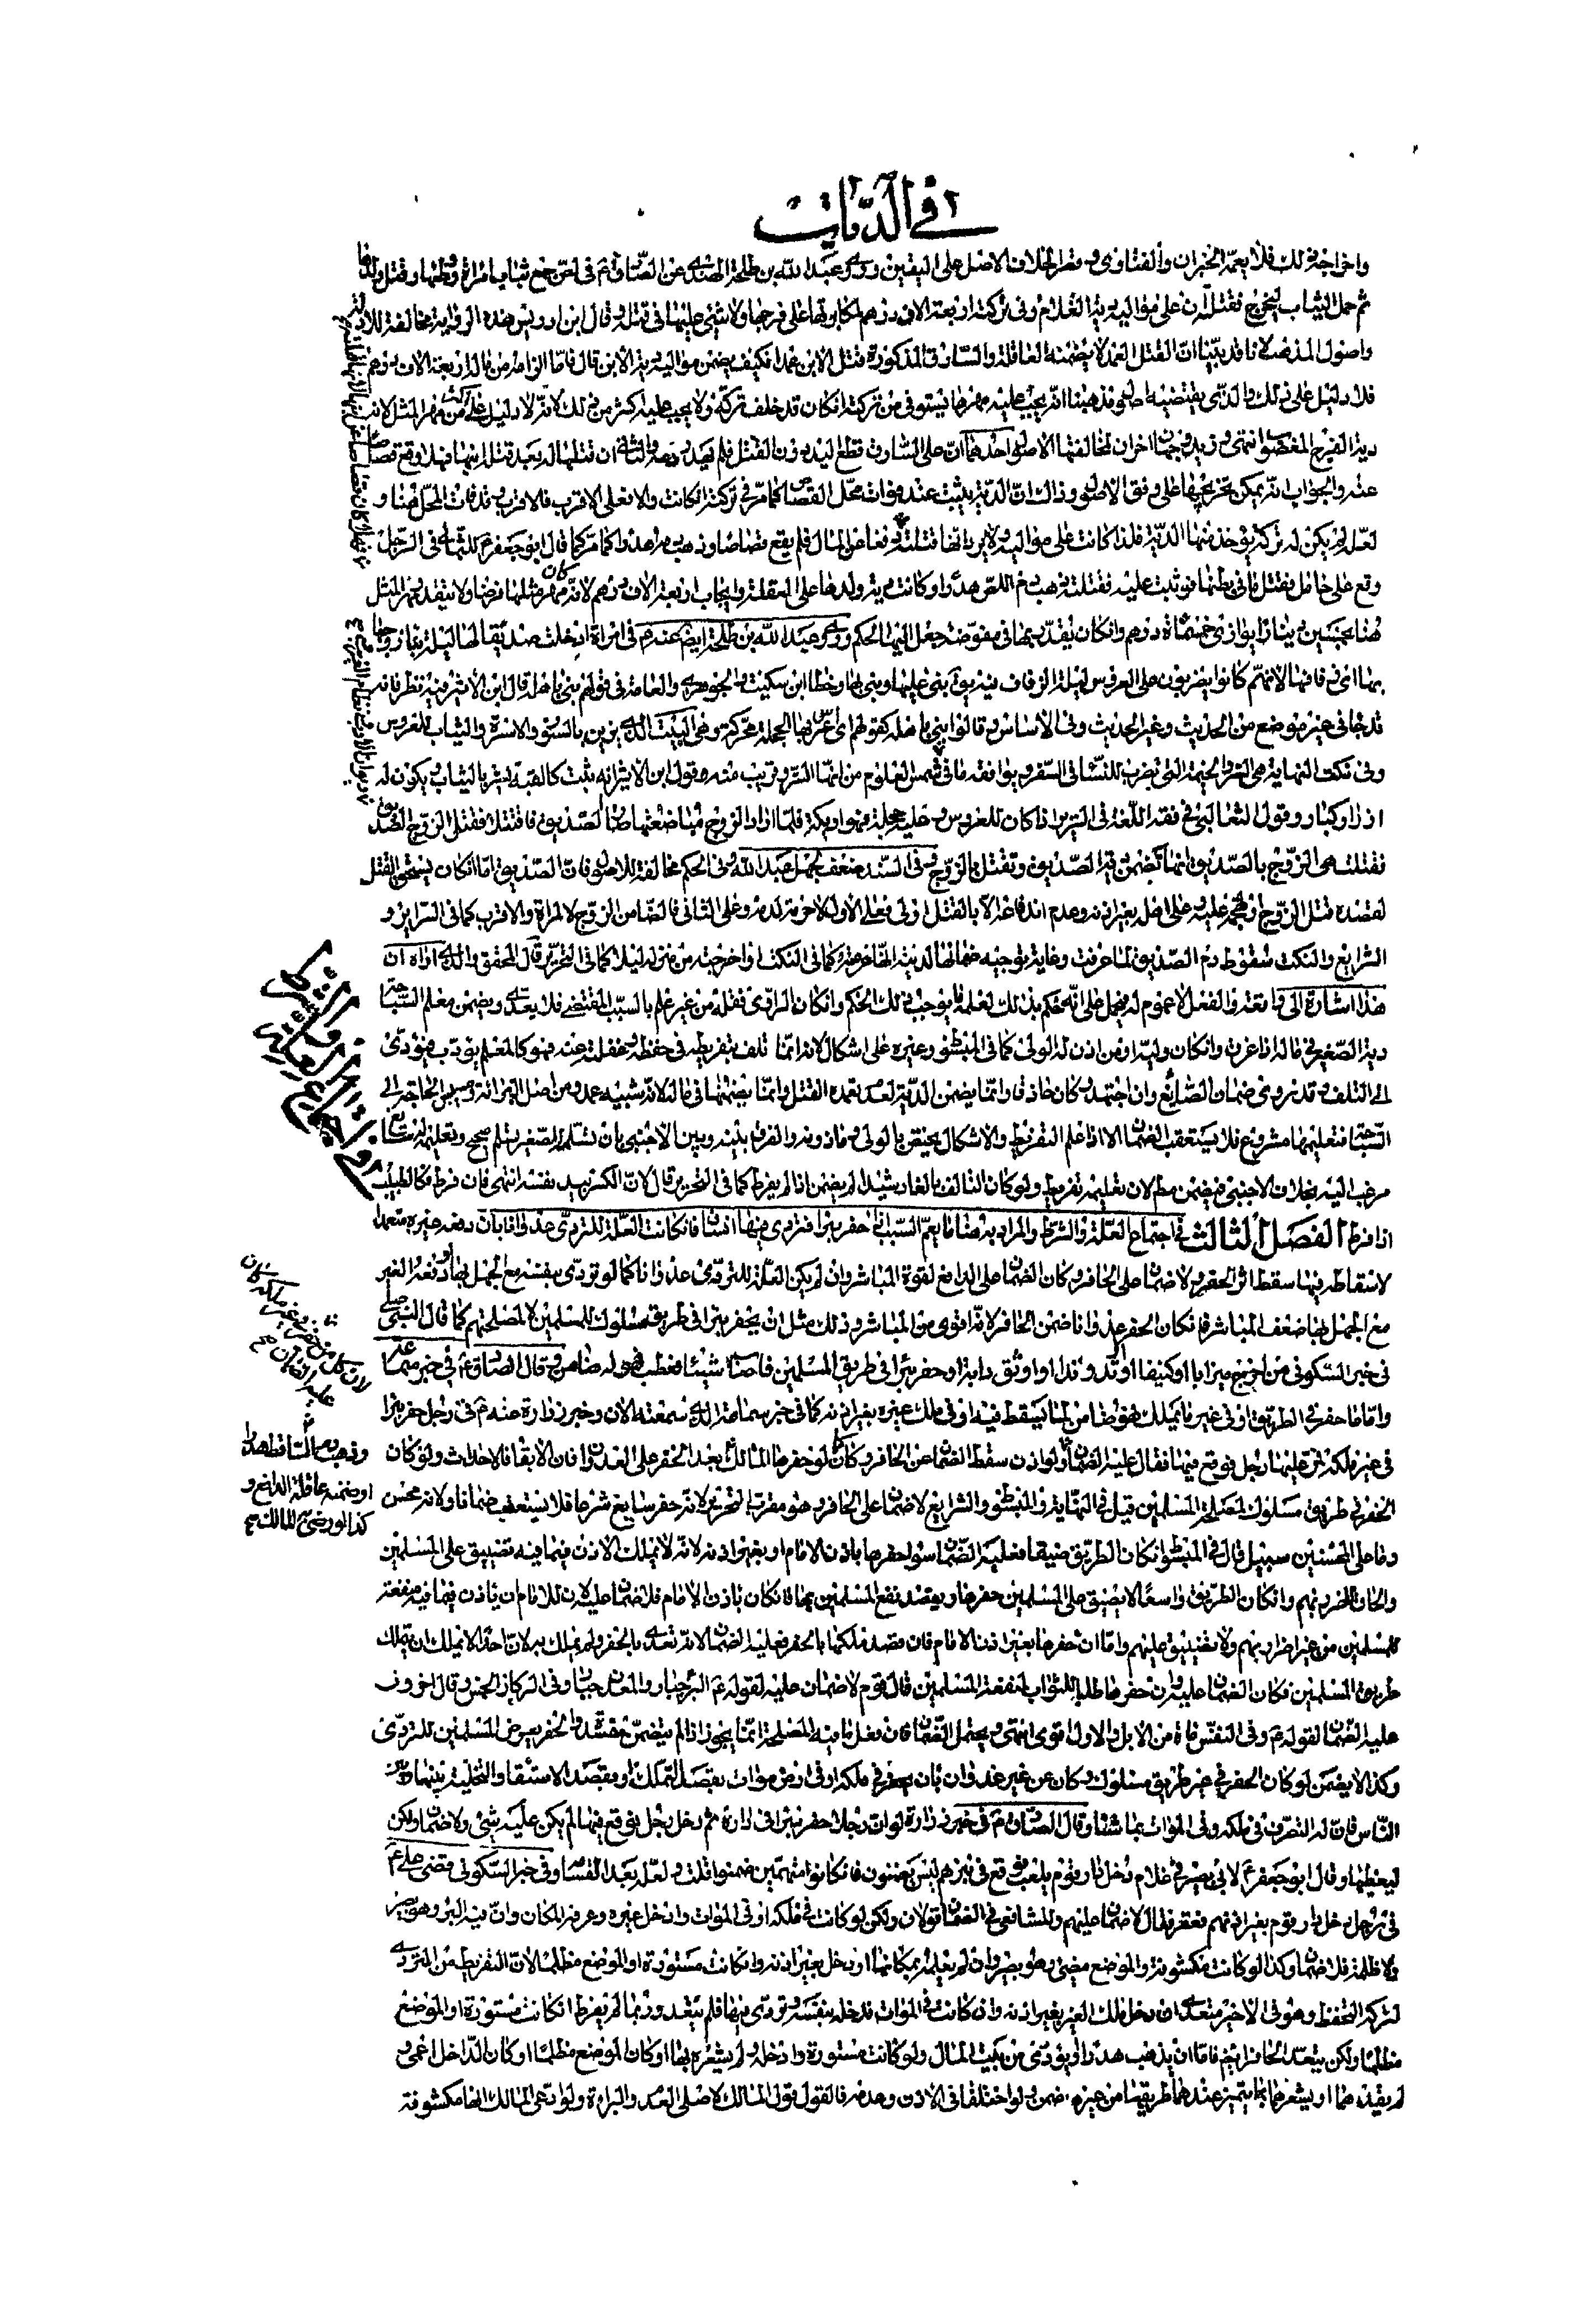 في الديات
واخراجه ذلك فلا يعمه الخبران والفتاوى ومقر الخلاف الاصل على اليقين وروى عبد الله بن طلحة عن الصادق ع في لص جمع ثياب امراة ووطئها وقتل ولدها
ثم حمل الثياب ليخرج فقتلته ان على مواليه دية الغلام وفي تركته اربعة الاف درهم لمكابرتها على فرجها ولا شيء عليها في قتله وقال ابن ادريس هذه الرواية مخالفة للادلة
واصول المذهب لانا قد بينا ان القتل العمد لا يضمنه العاقلة والسارق المذكور قتل الابن عمدا فكيف يضمن مواليه دية الابن قال فاما الزامه من ماله اربعة الاف درهم
فلا دليل على ذلك والذي يقتضيه اصول مذهبنا انه يجب عليه مهر مثلها يستوفى من تركته ان كان قد خلف تركة ولا يجب عليه اكثر من ذلك لانه لا دليل على اكثر من مهر المثل لانه
دية الفرج المغصوب انتهى وزيد وجهان اخران لمخالفتها الاصول احدهما ان على السارق قطع اليد دون القتل فلم يهدر دمه والثاني ان قتلها له بعد قتل ابنها فهلا وقع قصاصا
عنه والجواب انه يمكن تخريجها على وفق الاصول وذلك ان الدية يثبت عند فوات محل القصاص كما مر في تركته ان كانت والا فعلى الاقرب فالاقرب وقد فات المحل هنا و
لعله لم يكن له تركة يؤخذ منها الدية فلذا كانت على مواليه ولا يرد انها قتلته دفعا عن المال فلم يقع قصاصا وذهب دمه هدرا كما مر كما قال ابو جعفر ع للثمالي في الرجل
وقع على حامل فقتل ما في بطنها فوثبت عليه فقتلته ذهب دم اللص هدرا وكانت دية ولدها على العقلة وايجاب اربعة الاف درهم لانه كان مهر مثلها فرضا ولا يتقدر مهر المثل
هنا بخمسين دينارا يوازي خمسمائة درهم وان كان يتقدر بها في مفوضة جعل اليها الحكم وروى عبد الله بن طلحة ايضا عنه ع في امراة ادخلت صديقا لها ليلة بناء زوجها
بها اي زفافها لانهم كانوا يضربون على العروس ليلة الزفاف فيه يقال بنى عليها وبنى بها وخطا ابن سكيت والجوهري والعامة في قولهم بنى باهله قال ابن الاثير وفيه نظر فانه
قد جاء في غير موضع من الحديث وغير الحديث وفي الاساس وقالوا بنى باهله كقولهم اعرس بها الحجلة محركة وهي البيت الذي يزين بالستور والاسرة والثياب للعروس
وفي نكت النهاية هي الستر والخيمة التي تضرب للنساء في السفر ويوافقه ما في شمس العلوم من انها الستر وقريب منه قول ابن الاثير انه بيت كالقبة يستر بالثياب ويكون له
ازرار كبار وقول الثعالبي في فقه اللغة في السرير اذا كان للعروس وعليه حجلة فهو اريكة فلما اراد الزوج مباضعتها صال الصديق فاقتتلا فقتل الزوج الصديق
فقتلت هي الزوج بالصديق انها تضمن دية الصديق وتقتل بالزوج وفي السند ضعف بجهل عبد الله وفي الحكم مخالفة للاصول فان الصديق اما ان كان يستحق القتل
لقصده قتل الزوج او لهجمه عليه وعلى اهله بغير اذنه وعدم اندفاعه الا بالقتل او لا فعلى الاول لا حرمة لدمه وعلى الثاني فالضامن الزوج لا المراة والاقرب كما في السرائر و
الشرايع والنكت سقوط دم الصديق لما عرفت وغاية توجيه ضمانها لديته انها غرته كما في النكت او اخرجته من منزله ليلا كما في التحرير قال المحقق والذي اراه ان
هذا اشارة الى واقعة والفعل لا عموم له فيحمل على انه حكم بذلك لعلمه بما يوجب ذلك الحكم وان كان الراوي نقله من غير علم بالسبب المقتضي فلا يعدى ويضمن معلم السباحة
دية الصغير في ماله اذا غرق وان كان وليه او من اذن له الولي كما في المبسوط وغيره على اشكال لانه انما تلف بتفريطه في حفظه وغفلته عنه فهو كالمعلم يؤدب فيؤدي
الى التلف وقد نروى ضمان الصانع وان اجتهد وكان حاذقا وانما يضمن الدية لعدم تعمده القتل وانما يضمنها في ماله لانه شبيه عمد ومن اصل البراءة ومسيس الحاجة الى
السباحة فتعليمها مشروع فلا يستعقب الضمان الا اذا علم التفريط والاشكال يختص بالولي وماذونه والفرق بينه وبين الاجنبي بان تسلمه الصغير تسلم صحيح وتعليمه له سائغ
مرغب اليه بخلاف الاجنبي فيضمن مطلقا لان تعليمه تفريط ولو كان التالف بالغا رشيدا لم يضمن اذا لم يفرط كما في التحرير قال لان الكبير بيد نفسه انتهى فان فرط فكالطبيب
اذا فرط الفصل الثالث في اجتماع العلة والشرط والمراد به هنا ما يعم السبب اذا حفر بئرا فتردى فيها انسان فان كانت العلة للتردي عدوانا بان دفعه غيره متعمدا
لاسقاطه فيها سقط اثر الحفر ولا ضمان على الحافر وكان الضمان على الدافع لقوة المباشر وان لم يكن العلة للتردي عدوانا كما لو تردى بنفسه مع الجهل بها او دفعه الغير
مع الجهل بها ضعف المباشر فان كان الحفر عدوانا ضمن الحافر لانه اقوى من المباشر وذلك مثل ان يحفر بئرا في طريق مسلوك للمسلمين لا لمصلحتهم كما قال النبي ص
في خبر السكوني من اخرج ميزابا او كنيفا او اوتد وتدا او اوثق دابة او حفر بئرا في طريق المسلمين فاصاب شيئا فعطب فهو له ضامن وقال الصادق ع في خبر سماعة
واما ما حفر في الطريق او في غير ما يملك فهو ضامن لما يسقط فيه او في ملك غيره بغير اذنه كما في خبر سماعة الذي سمعته الان وخبر زرارة عنه ع في رجل حفر بئرا
في غير ملكه فمر عليها رجل فوقع فيها فقال عليه الضمان ولو اذن سقط الضمان عن الحافر وكان كما لو حفرها المالك بعد الحفر على العدوان فان الابقاء كالاحداث ولو كان
الحفر في طريق مسلوك لمصلحة المسلمين قيل في النهاية والمبسوط والشرايع لا ضمان على الحافر وهو مقرب التحرير لانه حفر سايغ شرعا فلا يستعقب ضمانا ولانه محسن
وما على المحسنين سبيل قال في المبسوط ان كان الطريق ضيقا فعليه الضمان سواء حفرها باذن الامام او بغير اذنه لانه لا يملك الاذن فيما فيه تضييق على المسلمين
والحاق الضرر بهم وان كان الطريق واسعا لا يضيق على المسلمين حفرها ويقصد نفع المسلمين بها فان كان باذن الامام فلا ضمان عليه لان للامام ان ياذن فيما فيه منفعة
للمسلمين من غير اضرار بهم ولا تضييق عليهم واما ان حفرها بغير اذن الامام فان قصد ملكها بالحفر فعليه الضمان لانه تعدى بالحفر ولم يملك به لان احدا لا يملك ان يتملك
طريق المسلمين فكان الضمان عليه وان حفرها طلبا للثواب لمنفعة المسلمين قال قوم لا ضمان عليه لقوله ع البئر جبار والمعدن جبار وفي الركاز الخمس وقال اخرون
عليه الضمان لقوله ع وفي النفس مائة من الابل والاول اقوى انتهى ويحتمل الضمان فان فعل ما فيه المصلحة انما يجوز اذا لم يتضمن مفسدة والحفر يعرض المسلمين للتردي
وكذا لا يضمن لو كان الحفر في غير طريق مسلوك وكان عن غير عدوان بان حفر في ملكه او في ارض موات بقصد التملك او بقصد الاستقاء والتخلية بينها وبين
الناس فان له التصرف في ملكه وفي الموات بما شاء وقال الصادق ع في خبر زرارة لو ان رجلا حفر بئرا في داره ثم دخل رجل فوقع فيها لم يكن عليه شيء ولا ضمان ولكن
ليغطها وقال ابو جعفر ع لابي بصير في غلام دخل دار قوم يلعب فوقع في بئرهم ليس يضمنون فان كانوا متهمين ضمنوا قلت ولعله بعد القسامة وفي خبر السكوني قضى علي ع
في رجل دخل دار قوم بغير اذنهم فعقر فقال لا ضمان عليهم وللشافعي في الضمان قولان ولكن لو كانت في ملكه او في الموات وادخل غيره وعرفه المكان وان فيه البئر وهو بصير
ولا ظلمة فلا ضمان وكذا لو كانت مكشوفة والموضع مضيء وهو بصير وان لم يعلمه بمكانها او دخل بغير اذنه وان كانت مستورة او الموضع مظلما لان التفريط من المتردي
لتركه التحفظ وهو في الاخير متعد ان دخل ملك الغير بغير اذنه وان كانت في الموات فدخله بنفسه وتردى فيها فلم يتعد وربما لم يفرط ان كانت مستورة او الموضع
مظلما ولكن يتعد الحافر ايضا فاما ان يذهب هدرا او يؤدى من بيت المال ولو كانت مستورة وادخله ولم يشعره بها او كان الموضع مظلما او كان الداخل اعمى و
لم يقيده هما او يشعرهما بما يتميز عندهما طريقها من غيره ضمن ولو اختلفا في الاذن وعدمه فالقول قول المالك لاصلي العدم والبراءة ولو ادعى المالك انها مكشوفة
وذهب دم الساقط هدرا
او ضمنه عاقلة الدافع و
كذا لو رضي المالك